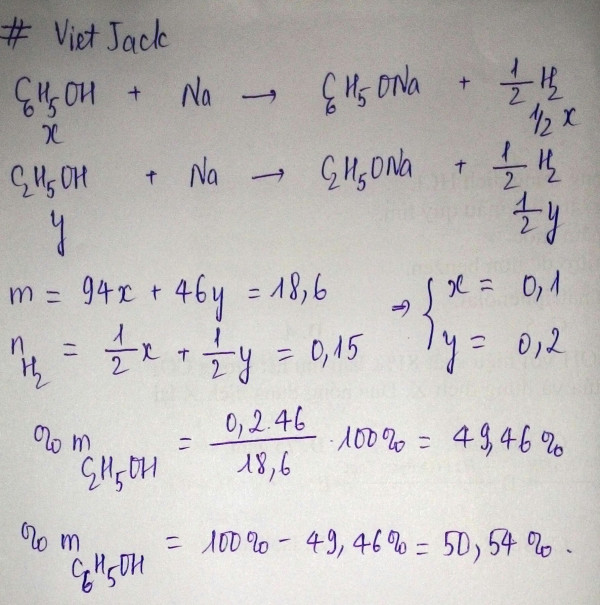 # VietJack
C₆H₅OH + Na → C₆H₅ONa + 1/2 H₂
x 1/2 x
C₂H₅OH + Na → C₂H₅ONa + 1/2 H₂
y 1/2 y
m = 94x + 46y = 18,6
n_H₂ = 1/2 x + 1/2 y = 0,15
⇒ { x = 0,1
y = 0,2
% m_C₂H₅OH = 0,2.46 / 18,6 . 100% = 49,46%
% m_C₆H₅OH = 100% - 49,46% = 50,54%.